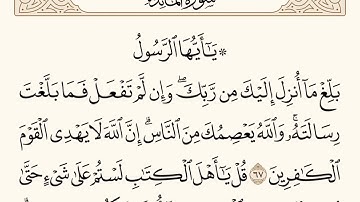 سورة المائدة
۞ يَـٰٓأَيُّهَا ٱلرَّسُولُ
بَلِّغْ مَآ أُنزِلَ إِلَيْكَ مِن رَّبِّكَ ۖ وَإِن لَّمْ تَفْعَلْ فَمَا بَلَّغْتَ
رِسَالَتَهُۥ ۚ وَٱللَّهُ يَعْصِمُكَ مِنَ ٱلنَّاسِ ۗ إِنَّ ٱللَّهَ لَا يَهْدِى ٱلْقَوْمَ
ٱلْكَـٰفِرِينَ ٦٧ قُلْ يَـٰٓأَهْلَ ٱلْكِتَـٰبِ لَسْتُمْ عَلَىٰ شَىْءٍ حَتَّىٰ